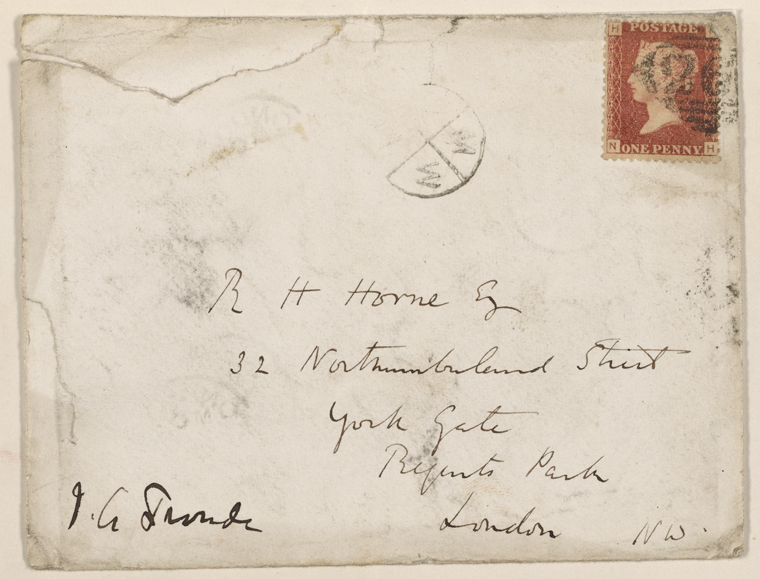 H POSTAGE
N ONE PENNY H
W
W
R H Horne Eq
32 Northumberland Street
York Gate
Regents Park
London NW.
J. A Froude